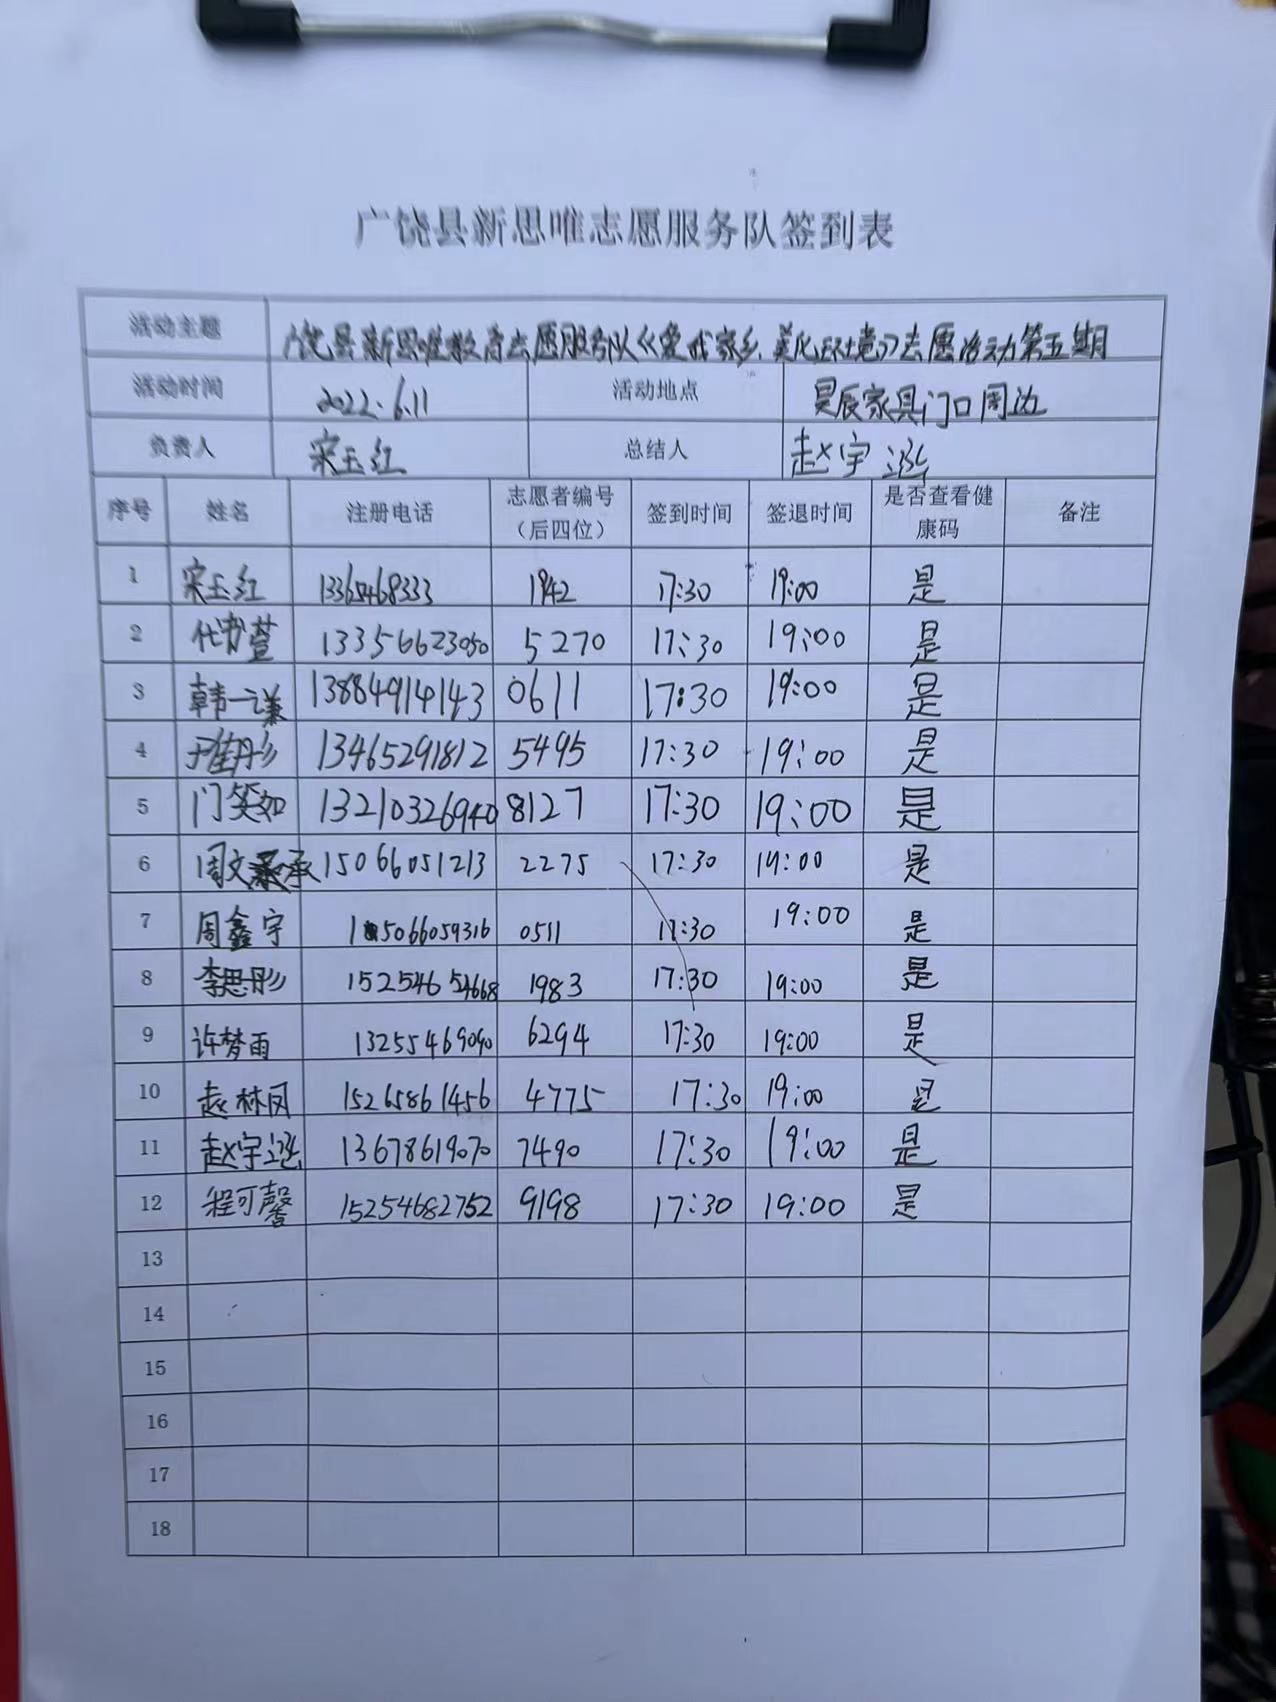 广饶县新思唯志愿服务队签到表
活动主题 广饶县新思唯教育志愿服务队《爱我家乡、美化环境》志愿活动第五期
活动时间 2022.6.11 活动地点 昊辰家具门口周边
负责人 宋玉红 总结人 赵宇涵
序号 姓名 注册电话 志愿者编号（后四位） 签到时间 签退时间 是否查看健康码 备注
1 宋玉红 13365468333 1942 17:30 19:00 是
2 代书萱 13356623050 5270 17:30 19:00 是
3 韩一谦 13884914143 0611 17:30 19:00 是
4 13465291812 5495 17:30 19:00 是
5 门笑如 13210326940 8127 17:30 19:00 是
6 周文承 15066051213 2275 17:30 19:00 是
7 周鑫宇 15066059316 0511 17:30 19:00 是
8 李思彤 15254654668 1983 17:30 19:00 是
9 许梦雨 13255469090 6294 17:30 19:00 是
10 赵林凤 15265861456 4775 17:30 19:00 是
11 赵宇涵 13678619070 7490 17:30 19:00 是
12 程可馨 15254682752 9198 17:30 19:00 是
13
14
15
16
17
18